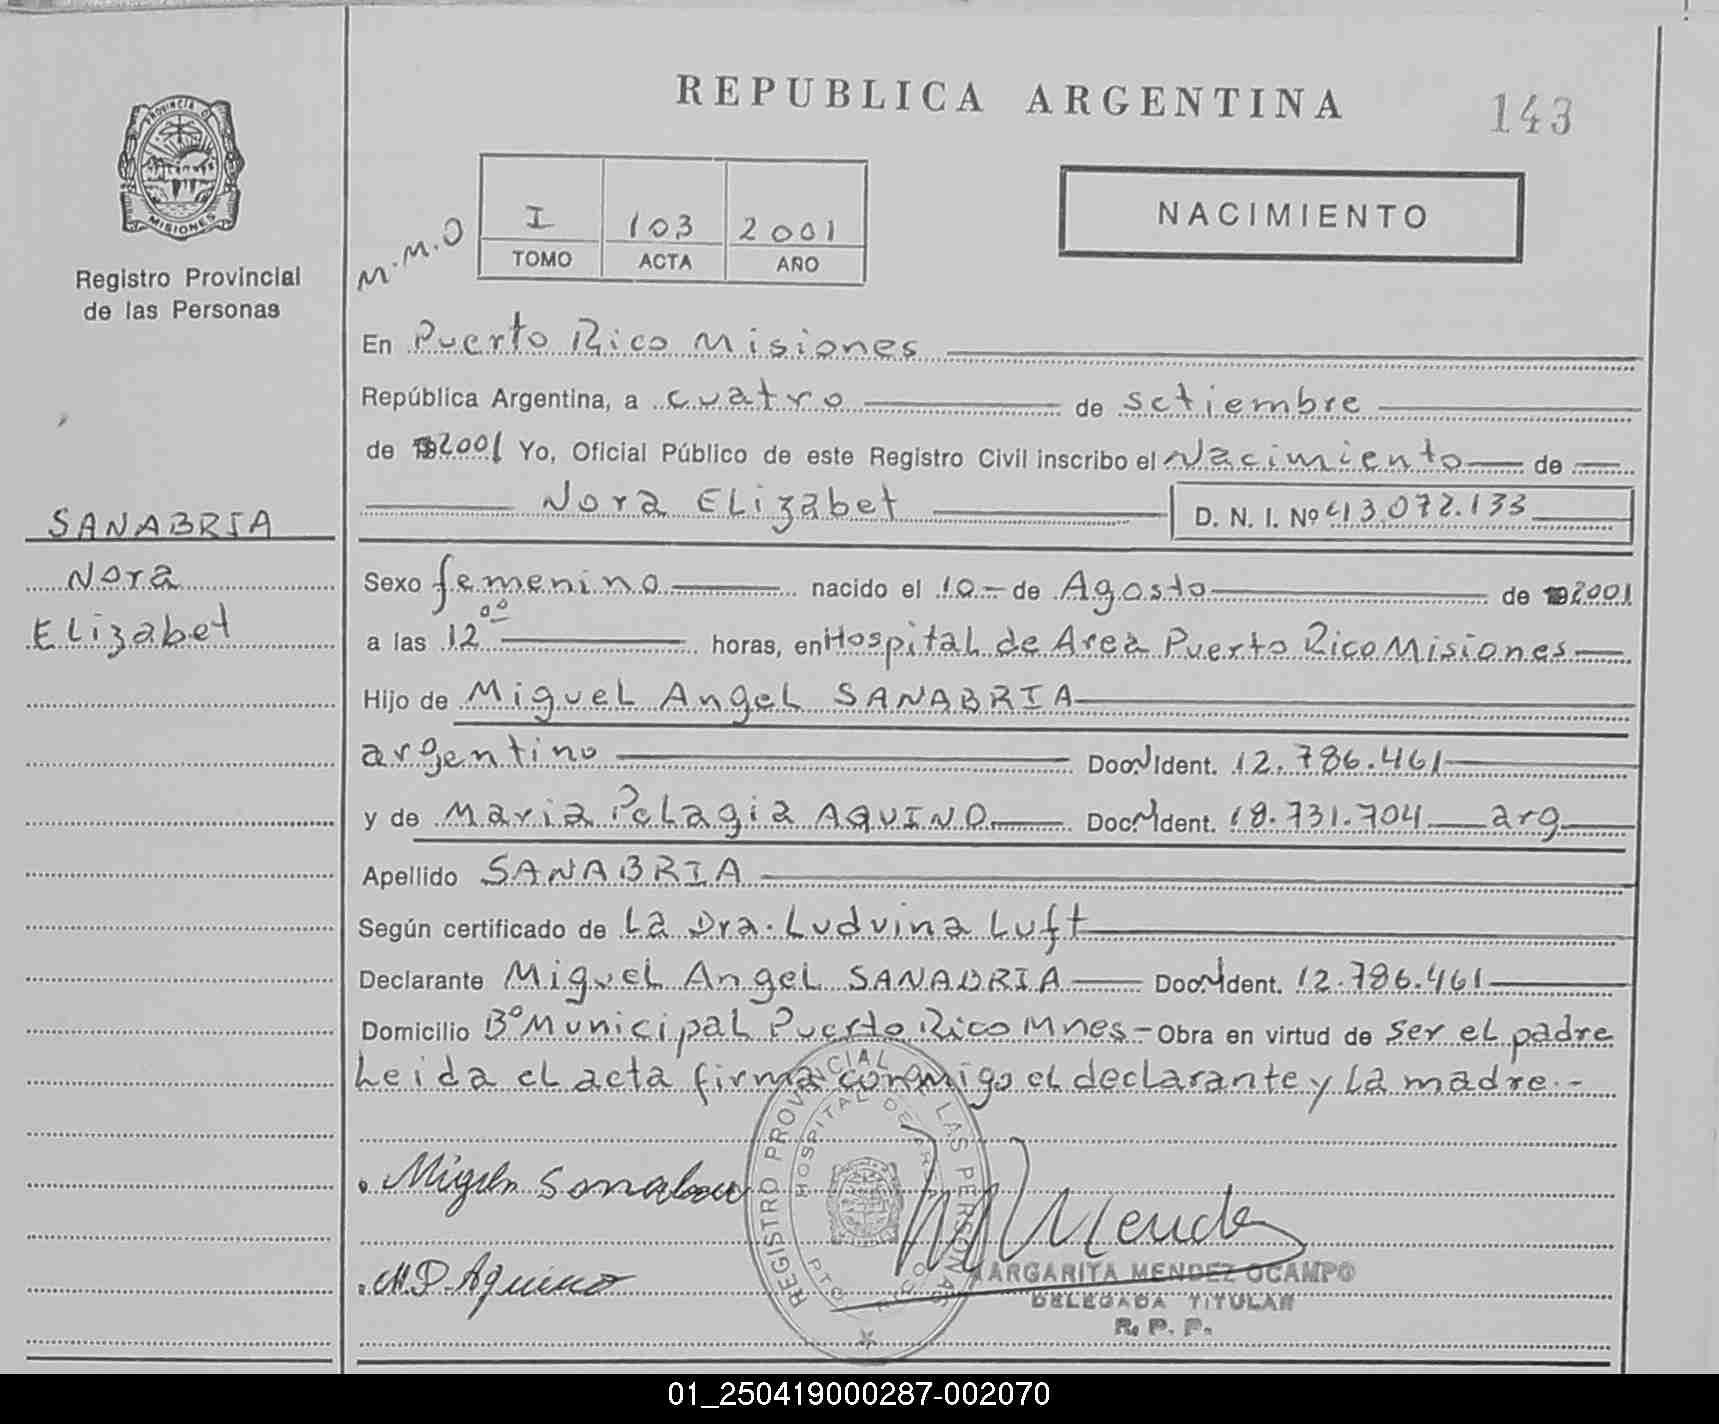 REPUBLICA ARGENTINA
143
PROVINCIA D
MISIONES
Registro Provincial
de las Personas
M.M.O
I 103 2001
TOMO ACTA AÑO
NACIMIENTO
En Puerto Rico Misiones
República Argentina, a cuatro de setiembre
de 2001 Yo, Oficial Público de este Registro Civil inscribo el Nacimiento de
Nora ELizabet D. N. I. Nº 43.072.133
SANABRIA
Nora
ELizabet
Sexo femenino nacido el 10 de Agosto de 2001
a las 12 00 horas, en Hospital de Area Puerto Rico Misiones
Hijo de MigueL AngeL SANABRIA
argentino Doc. Ident. 12.786.461
y de Maria PeLagia AQUINO Doc. Ident. 18.731.704 arg
Apellido SANABRIA
Según certificado de La Dra. Ludvina Luft
Declarante MigueL AngeL SANABRIA Doc. Ident. 12.786.461
Domicilio Bº MunicipaL Puerto Rico Mnes - Obra en virtud de ser eL padre
Leida eL acta firma conmigo eL declarante y La madre.-
REGISTRO PROVINCIAL LAS PERSONAS
HOSPITAL DE AREA
PTO RICO
M.P. Aquino
MARGARITA MENDEZ OCAMPO
DELEGADA TITULAR
R. P. P.
01_250419000287-002070